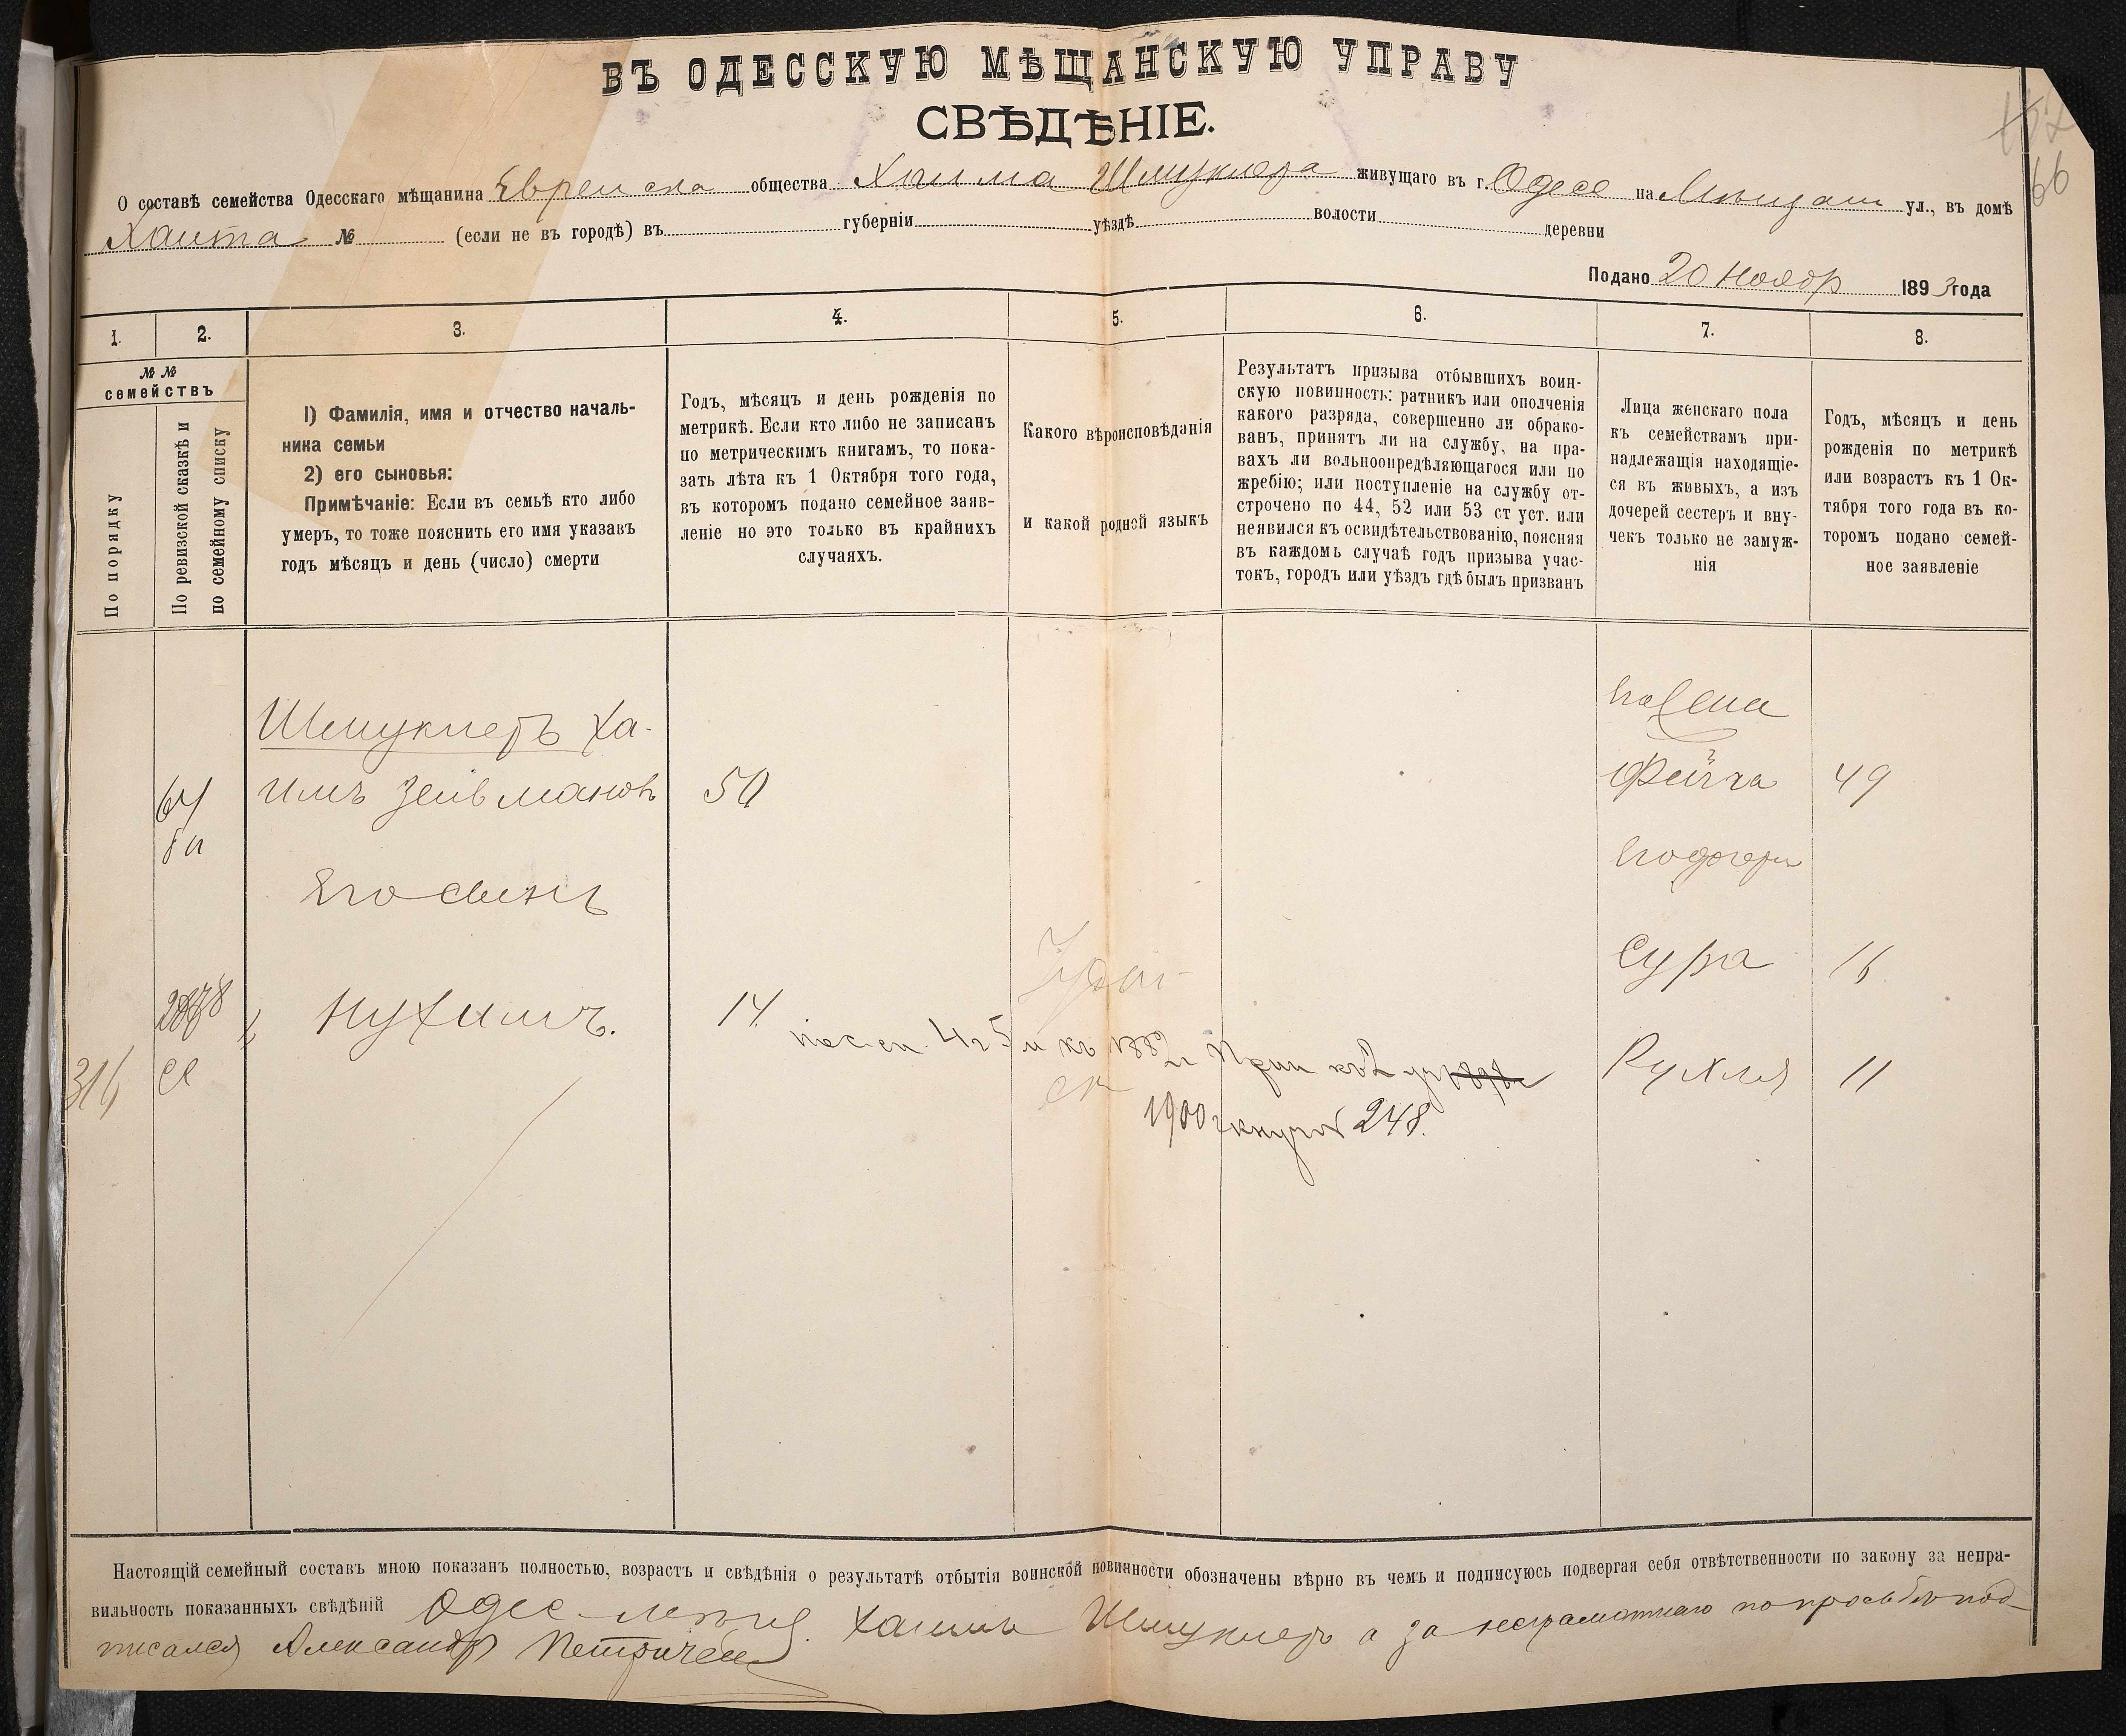 ВЪ ОДЕССКУЮ МѢЩАНСКУЮ УПРАВУ
СВѢДѢНІЕ.
О составѣ семейства Одесскаго мѣщанина Евреиска общества Хаима Шмуклера живущаго въ г. Одесе на Мѣщан ул., въ домѣ
Хаита № (если не въ городѣ) въ губерніи уѣздѣ волости деревни
66
Подано 20 Ноябр 1893 года
1. 2. 3. 4. 5. 6. 7. 8.
№ №
семействъ
По порядку
По ревизской сказкѣ и
по семейному списку
1) Фамилія, имя и отчество началь-
ника семьи
2) его сыновья:
Примѣчаніе: Если въ семьѣ кто либо
умеръ, то тоже пояснить его имя указавъ
годъ мѣсяцъ и день (число) смерти
Годъ, мѣсяцъ и день рожденія по
метрикѣ. Если кто либо не записанъ
по метрическимъ книгамъ, то пока-
зать лѣта къ 1 Октября того года,
въ которомъ подано семейное заяв-
леніе но это только въ крайнихъ
случаяхъ.
Какого вѣроисповѣданія
и какой родной языкъ
Результатъ призыва отбывшихъ воин-
скую повинность: ратникъ или ополченія
какого разряда, совершенно ли обрако-
ванъ, принятъ ли на службу, на пра-
вахъ ли вольноопредѣляющагося или по
жребію; или поступленіе на службу от-
строчено по 44, 52 или 53 ст уст. или
неявился къ освидѣтельствованію, поясняя
въ каждомъ случаѣ годъ призыва учас-
токъ, городъ или уѣздъ гдѣ былъ призванъ
Лица женскаго пола
къ семействамъ при-
надлежащія находящіе-
ся въ живыхъ, а изъ
дочерей сестеръ и вну-
чекъ только не замуж-
нія
Годъ, мѣсяцъ и день
рожденія по метрикѣ
или возрастъ къ 1 Ок-
тября того года въ ко-
торомъ подано семей-
ное заявленіе
Шмуклеръ Ха-
имъ Зейвмановъ 50
Его сынъ
Нухимъ. 14
316
1900 г 248.
его жена
Фейга 49
его дочери
Сура 16
Рухля 11
Настоящій семейный составъ мною показанъ полностью, возрастъ и свѣдѣнія о результатѣ отбытія воинской повинности обозначены вѣрно въ чемъ и подписуюсь подвергая себя отвѣтственности по закону за непра-
вильность показанныхъ свѣдѣній Одес Хаимъ Шмуклеръ а за неграмотнаго по просьбѣ под-
писался Александръ